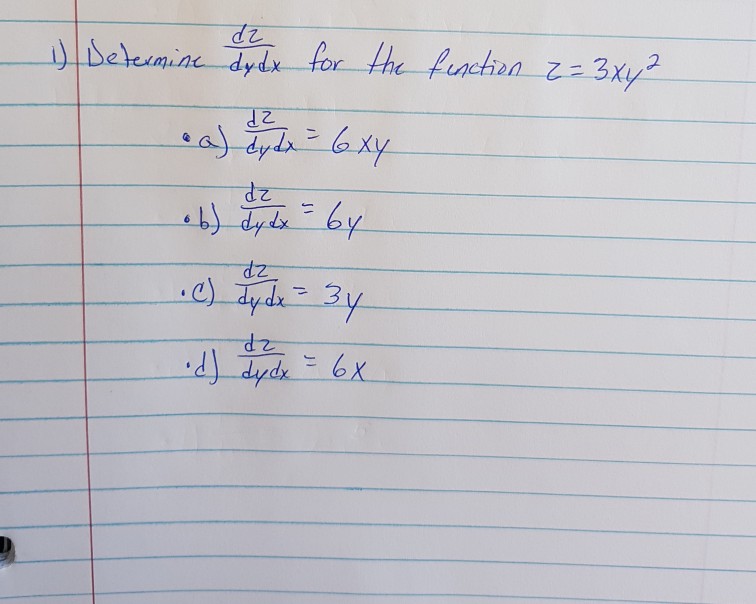 1) Determine dz/dydx for the function z = 3xy²
• a) dz/dydx = 6xy
• b) dz/dydx = 6y
• c) dz/dydx = 3y
• d) dz/dydx = 6x